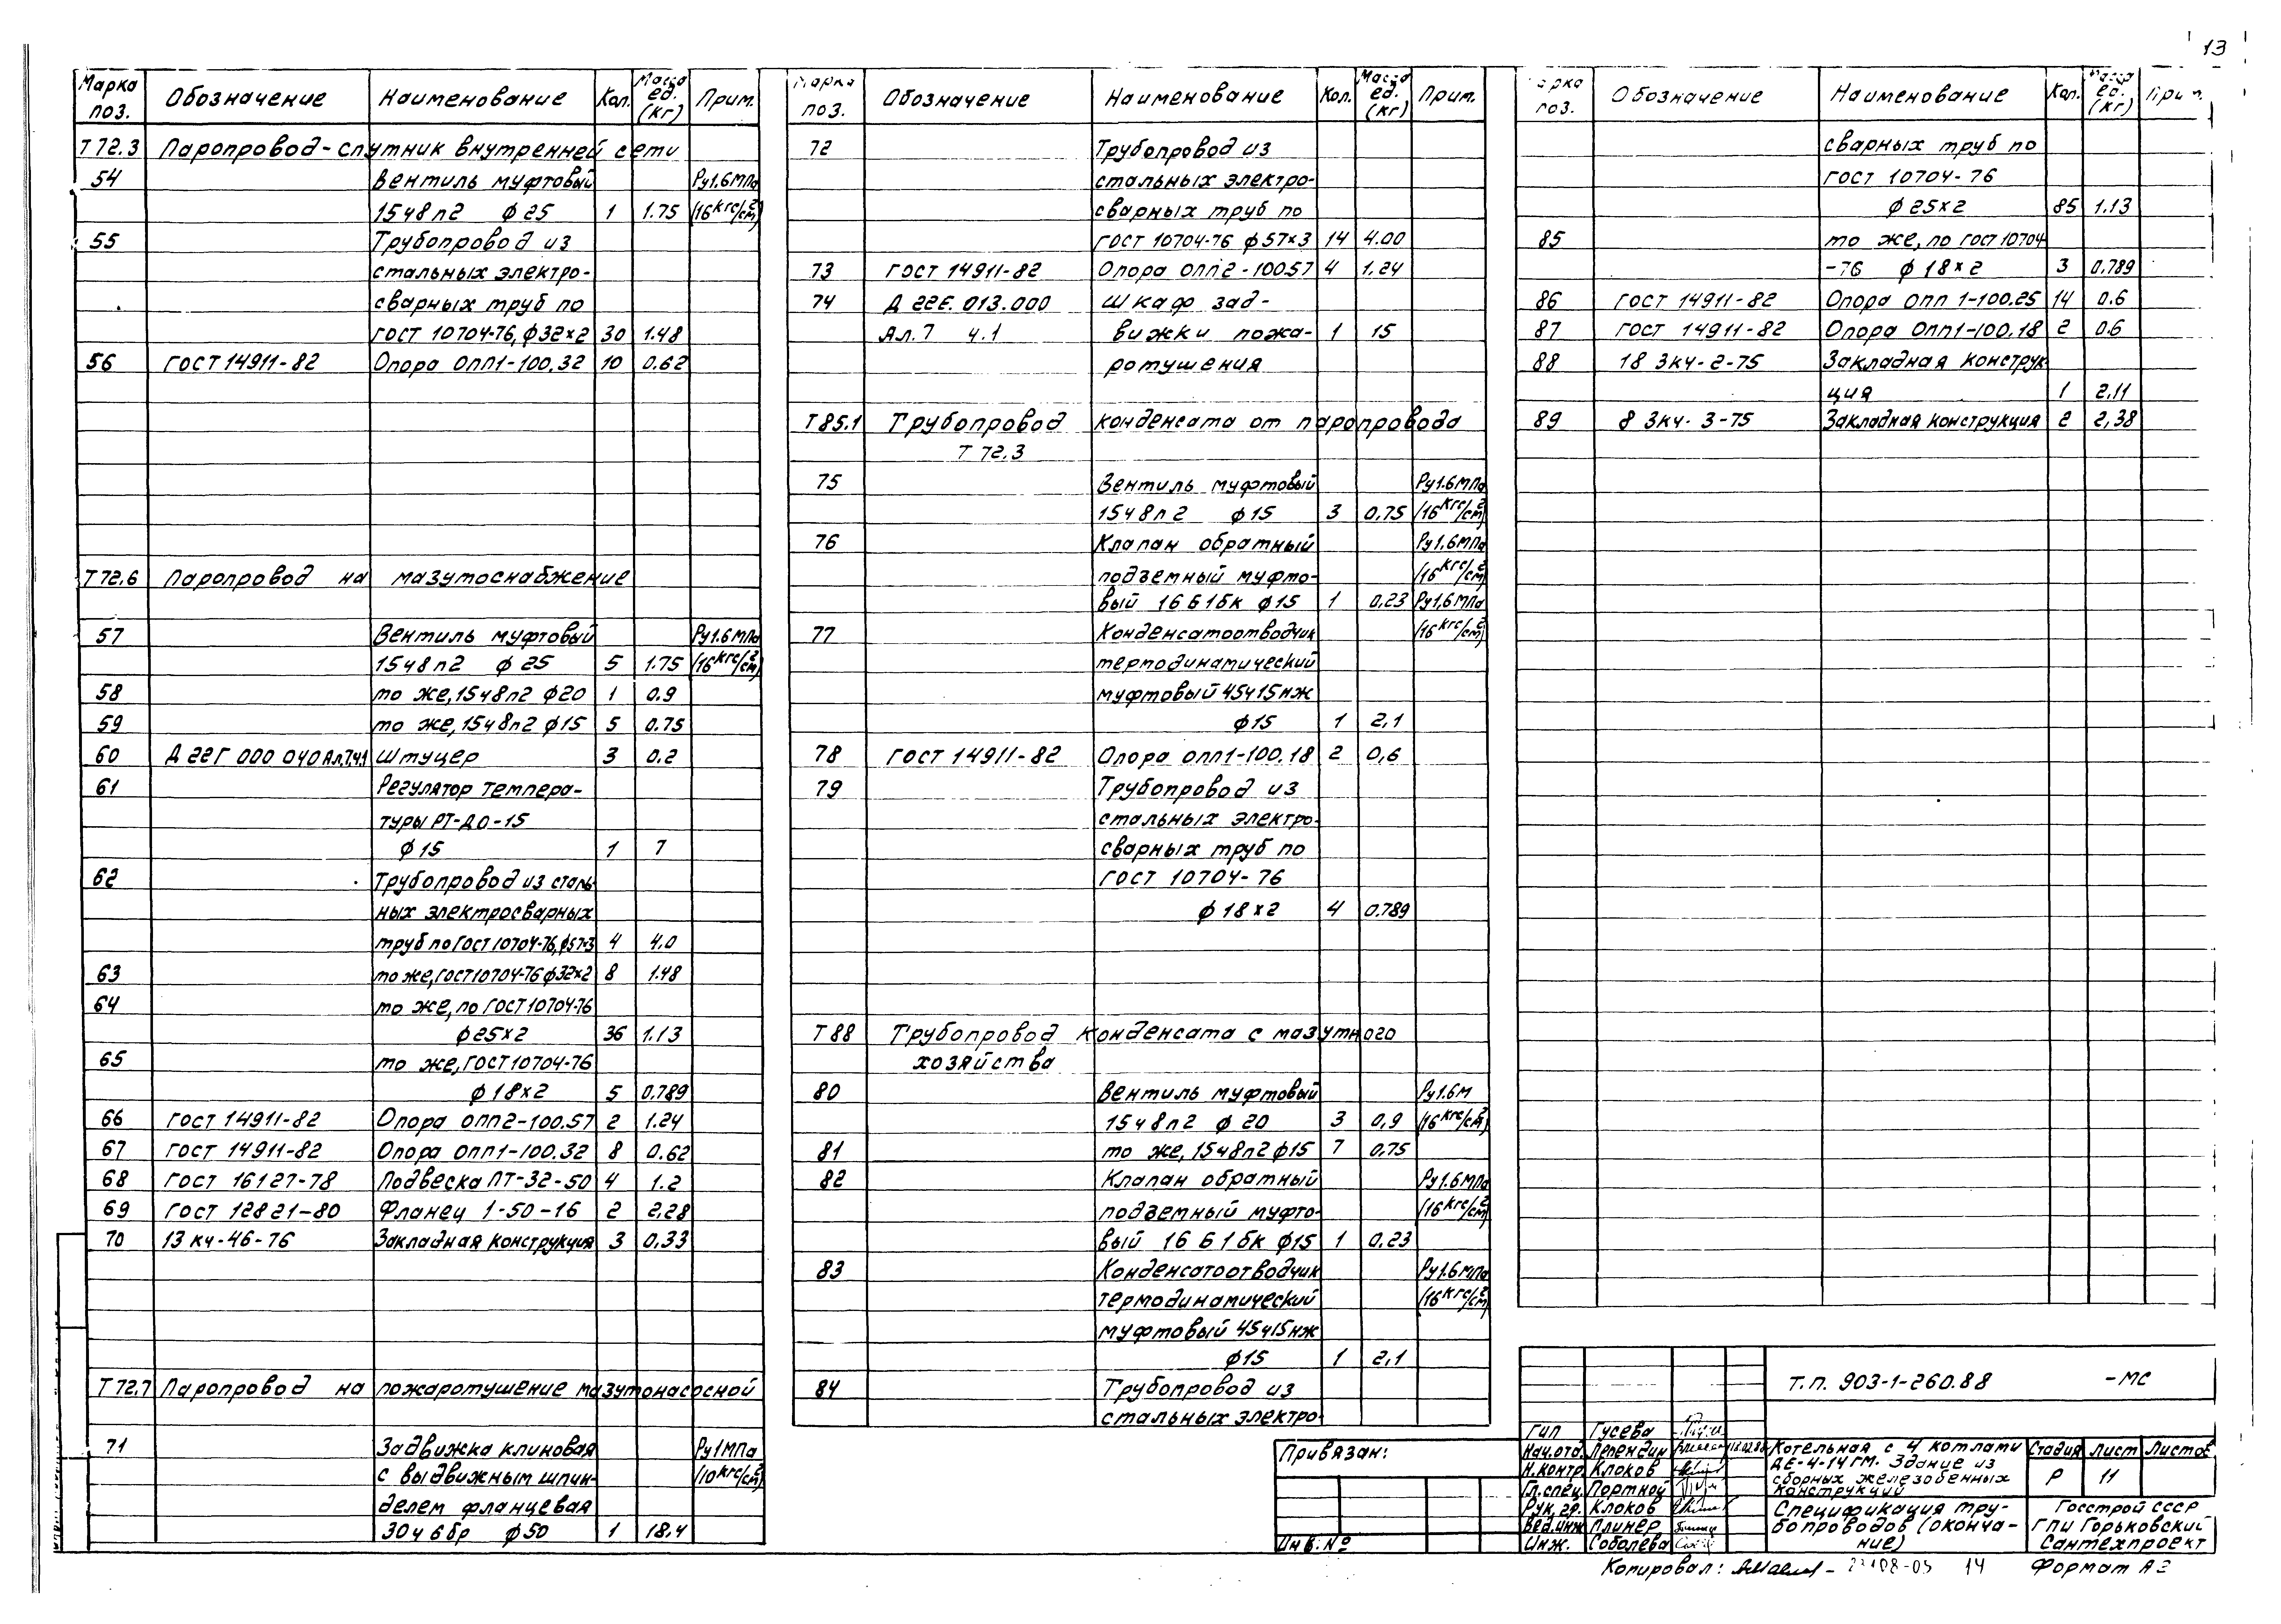 13
Марка поз. Обозначение Наименование Кол. Масса ед. (кг) Прим.
Т72.3 Паропровод-спутник внутренней сети
54 Вентиль муфтовый Ру1.6МПа
15ч8п2 ф25 1 1.75 (16кгс/см2)
55 Трубопровод из
стальных электро-
сварных труб по
ГОСТ 10704-76, ф32×2 30 1.48
56 ГОСТ 14911-82 Опора ОПП1-100.32 10 0.62
Т72.6 Паропровод на мазутоснабжение
57 Вентиль муфтовый Ру1.6МПа
15ч8п2 ф25 5 1.75 (16кгс/см2)
58 то же, 15ч8п2 ф20 1 0.9
59 то же, 15ч8п2 ф15 5 0.75
60 Д22Г 000 040 Ал.7.ч.1 Штуцер 3 0.2
61 Регулятор темпера-
туры РТ-ДО-15
ф15 1 7
62 Трубопровод из сталь-
ных электросварных
труб по ГОСТ 10704-76, ф57×3 4 4.0
63 то же, ГОСТ 10704-76 ф32×2 8 1.48
64 то же, по ГОСТ 10704-76
ф25×2 36 1.13
65 то же, ГОСТ 10704-76
ф18×2 5 0.789
66 ГОСТ 14911-82 Опора ОПП2-100.57 2 1.24
67 ГОСТ 14911-82 Опора ОПП1-100.32 8 0.62
68 ГОСТ 16127-78 Подвеска ПТ-32-50 4 1.2
69 ГОСТ 12821-80 Фланец 1-50-16 2 2,28
70 13 кч-46-76 Закладная конструкция 3 0,33
Т72.7 Паропровод на пожаротушение мазутонасосной
71 Задвижка клиновая Ру1МПа
с выдвижным шпин- (10кгс/см2)
делем фланцевая
30ч6бр ф50 1 18.4
Марка поз. Обозначение Наименование Кол. Масса ед. (кг) Прим.
72 Трубопровод из
стальных электро-
сварных труб по
ГОСТ 10704-76 ф57×3 14 4.00
73 ГОСТ 14911-82 Опора ОПП2-100.57 4 1.24
74 Д 22Е.013.000 Шкаф зад-
Ал.7 ч.1 вижки пожа- 1 15
ротушения
Т85.1 Трубопровод конденсата от паропровода
Т 72.3
75 Вентиль муфтовый Ру1.6МПа
15ч8п2 ф15 3 0,75 (16кгс/см2)
76 Клапан обратный Ру1.6МПа
подъемный муфто- (16кгс/см2)
вый 16Б1бк ф15 1 0,23 Ру1,6МПа
77 Конденсатоотводчик (16кгс/см2)
термодинамический
муфтовый 45ч15нж
ф15 1 2,1
78 ГОСТ 14911-82 Опора ОПП1-100.18 2 0,6
79 Трубопровод из
стальных электро-
сварных труб по
ГОСТ 10704-76
ф18×2 4 0.789
Т88 Трубопровод конденсата с мазутного
хозяйства
80 Вентиль муфтовый Ру1.6М
15ч8п2 ф20 3 0,9 (16кгс/см2)
81 то же, 15ч8п2 ф15 7 0,75
82 Клапан обратный Ру1.6МПа
подъемный муфто- (16кгс/см2)
вый 16Б1бк ф15 1 0.23
83 Конденсатоотводчик Ру1.6МПа
термодинамический (16кгс/см2)
муфтовый 45ч15нж
ф15 1 2,1
84 Трубопровод из
стальных электро-
Марка поз. Обозначение Наименование Кол. Масса ед. (кг) Прим.
сварных труб по
ГОСТ 10704-76
ф25×2 85 1.13
85 то же, по ГОСТ 10704
-76 ф18×2 3 0.789
86 ГОСТ 14911-82 Опора ОПП 1-100.25 14 0.6
87 ГОСТ 14911-82 Опора ОПП1-100.18 2 0.6
88 18 ЗКЧ-2-75 Закладная конструк
ция 1 2,11
89 8 ЗКЧ-3-75 Закладная конструкция 2 2,38
Привязан:
Инв.№
Т.п. 903-1-260.88 -МС
ГИП Гусева
Нач.отд. Лепендин
Н.контр. Клоков
Гл.спец. Портной
Рук.гр. Клоков
Вед.инж Плинер
Инж. Соболева
Котельная с 4 котлами
ДЕ-4-14ГМ. Здание из
сборных железобенных
конструкций
Стадия Лист Листов
Р 11
Спецификация тру-
бопроводов (оконча-
ние)
Госстрой СССР
ГПИ Горьковский
Сантехпроект
Копировал: 14 Формат А2